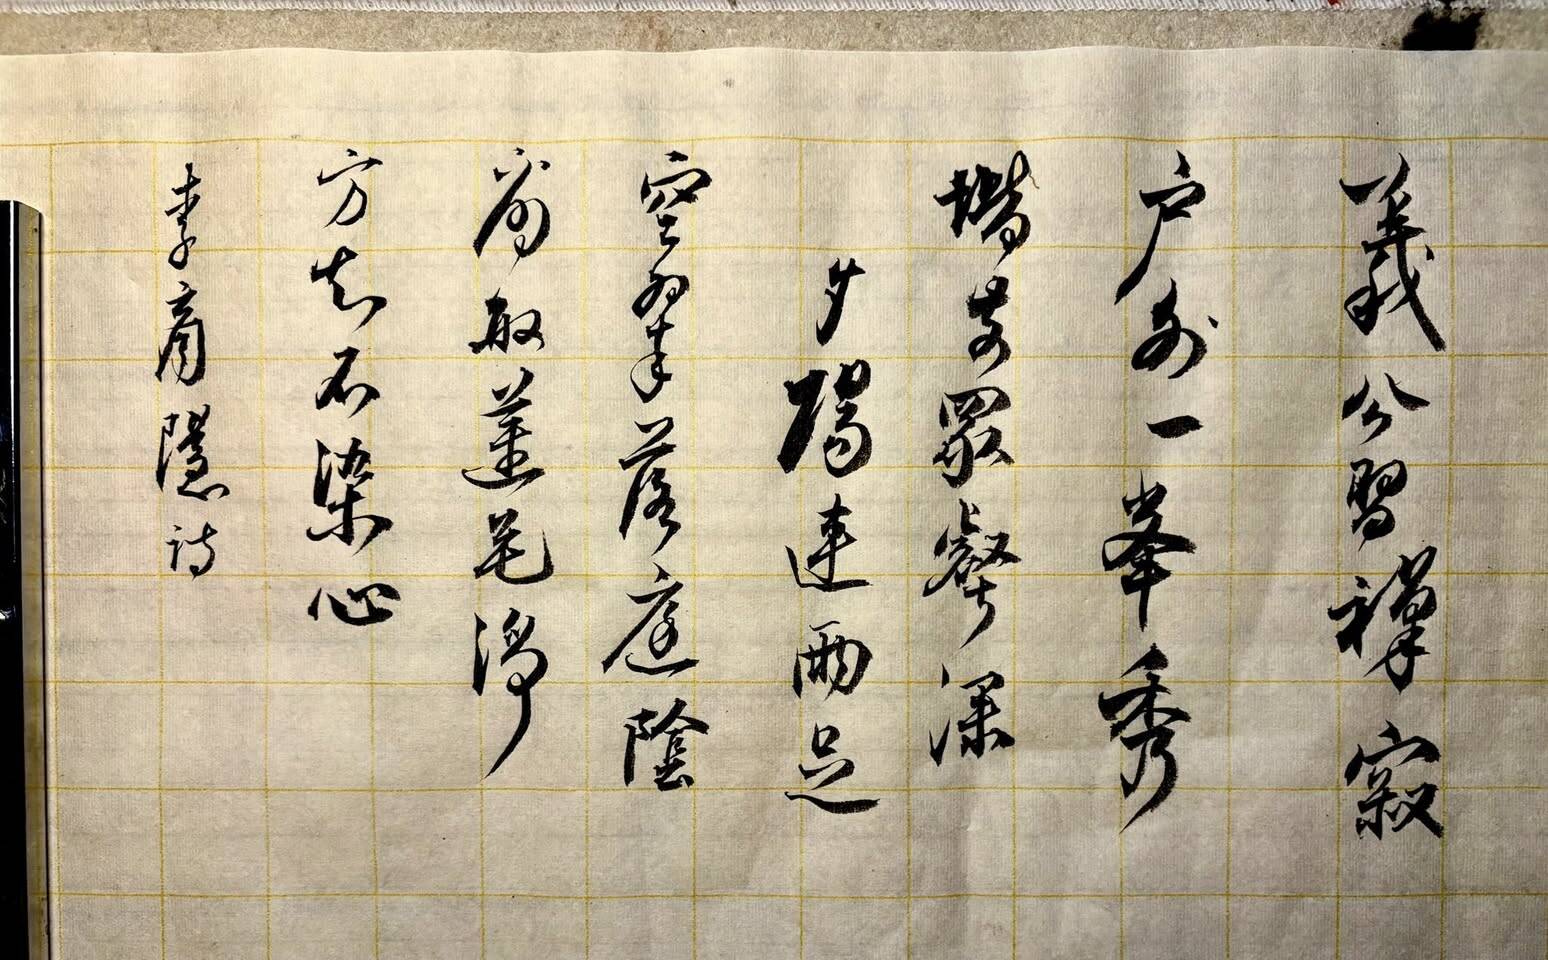 義公習禪寂
户外一峯秀
堦前眾壑深
夕陽連雨足
空翠落庭陰
看取蓮花淨
方知不染心
李商隱詩